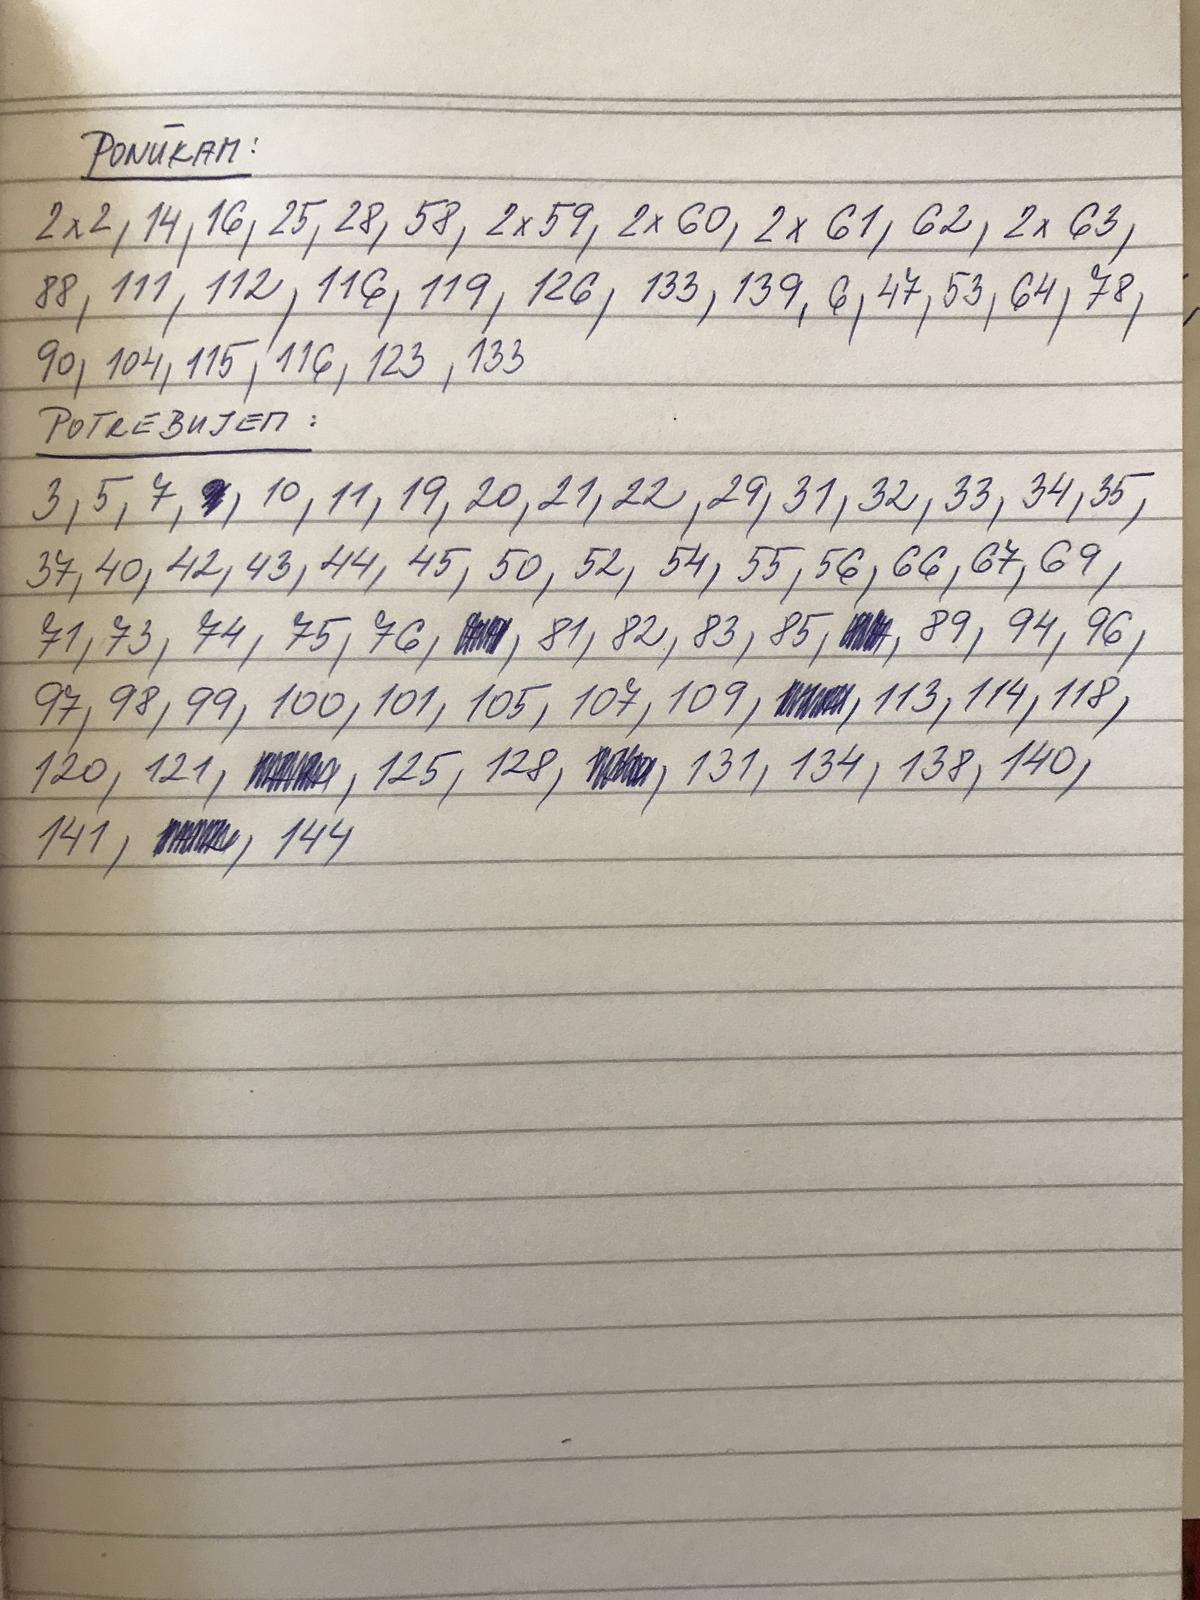 PONÚKAM:
2x2, 14, 16, 25, 28, 58, 2x59, 2x60, 2x 61, 62, 2x 63,
88, 111, 112, 116, 119, 126, 133, 139, 6, 47, 53, 64, 78,
90, 104, 115, 116, 123, 133
POTREBUJEM:
3, 5, 7, , 10, 11, 19, 20, 21, 22, 29, 31, 32, 33, 34, 35,
37, 40, 42, 43, 44, 45, 50, 52, 54, 55, 56, 66, 67, 69,
71, 73, 74, 75, 76, , 81, 82, 83, 85, , 89, 94, 96,
97, 98, 99, 100, 101, 105, 107, 109, , 113, 114, 118,
120, 121, , 125, 128, , 131, 134, 138, 140,
141, , 144